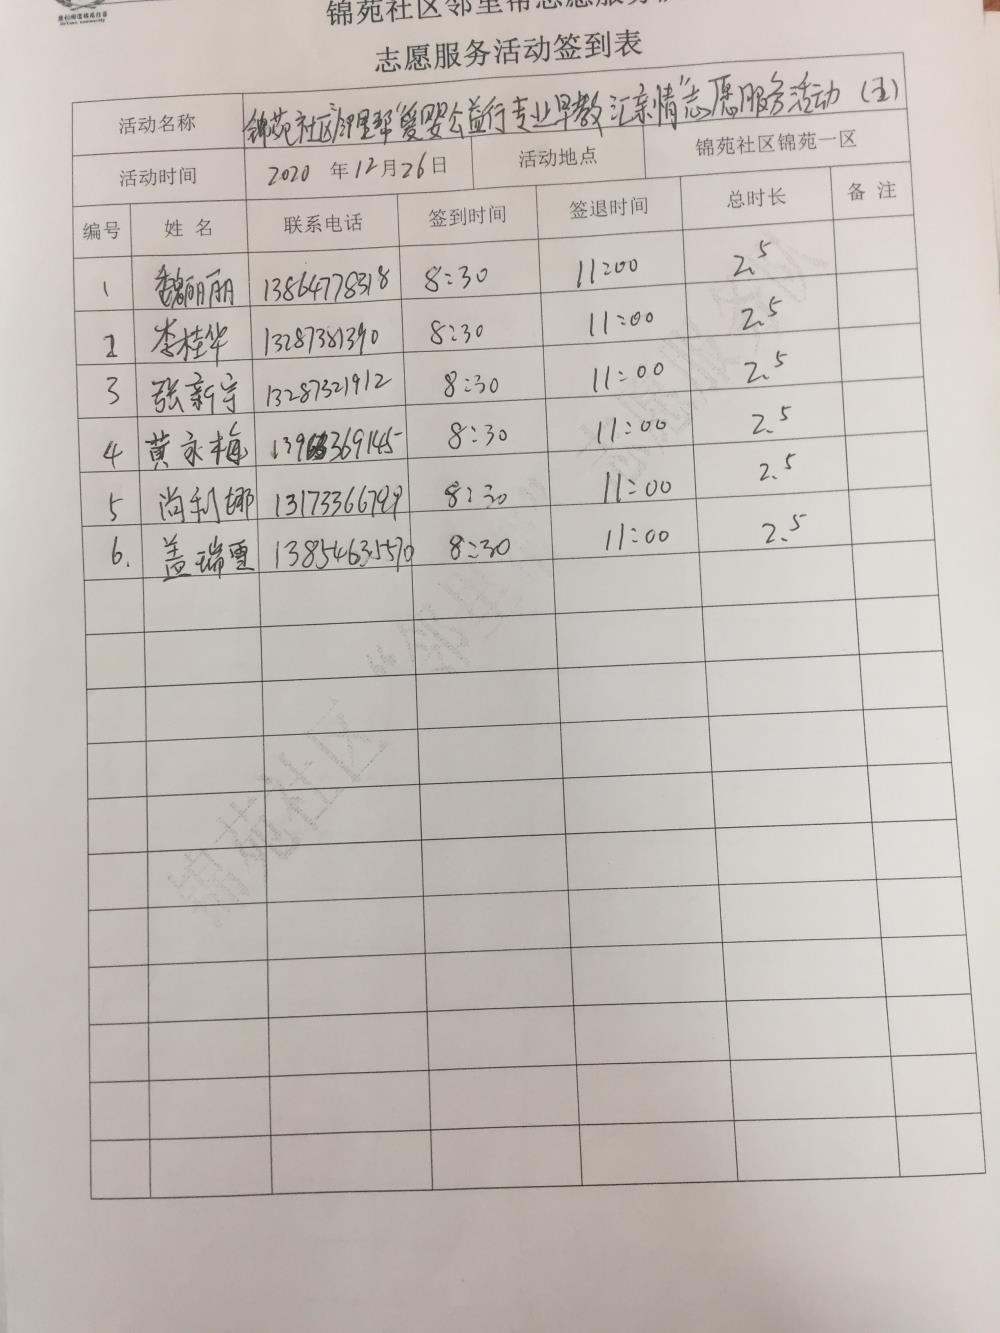 锦苑社区邻里帮志愿服务
志愿服务活动签到表
活动名称 锦苑社区邻里帮“爱婴公益行专业早教汇亲情”志愿服务活动(五)
活动时间 2020年12月26日 活动地点 锦苑社区锦苑一区
编号 姓名 联系电话 签到时间 签退时间 总时长 备注
1 魏丽丽 13864778318 8:30 11:00 2.5
2 李桂华 13287381390 8:30 11:00 2.5
3 张新宇 13287321912 8:30 11:00 2.5
4 黄永梅 8:30 11:00 2.5
5 尚利娜 8:30 11:00 2.5
6. 盖瑞雪 13854635570 8:30 11:00 2.5
锦苑社区“邻里帮”志愿服务队